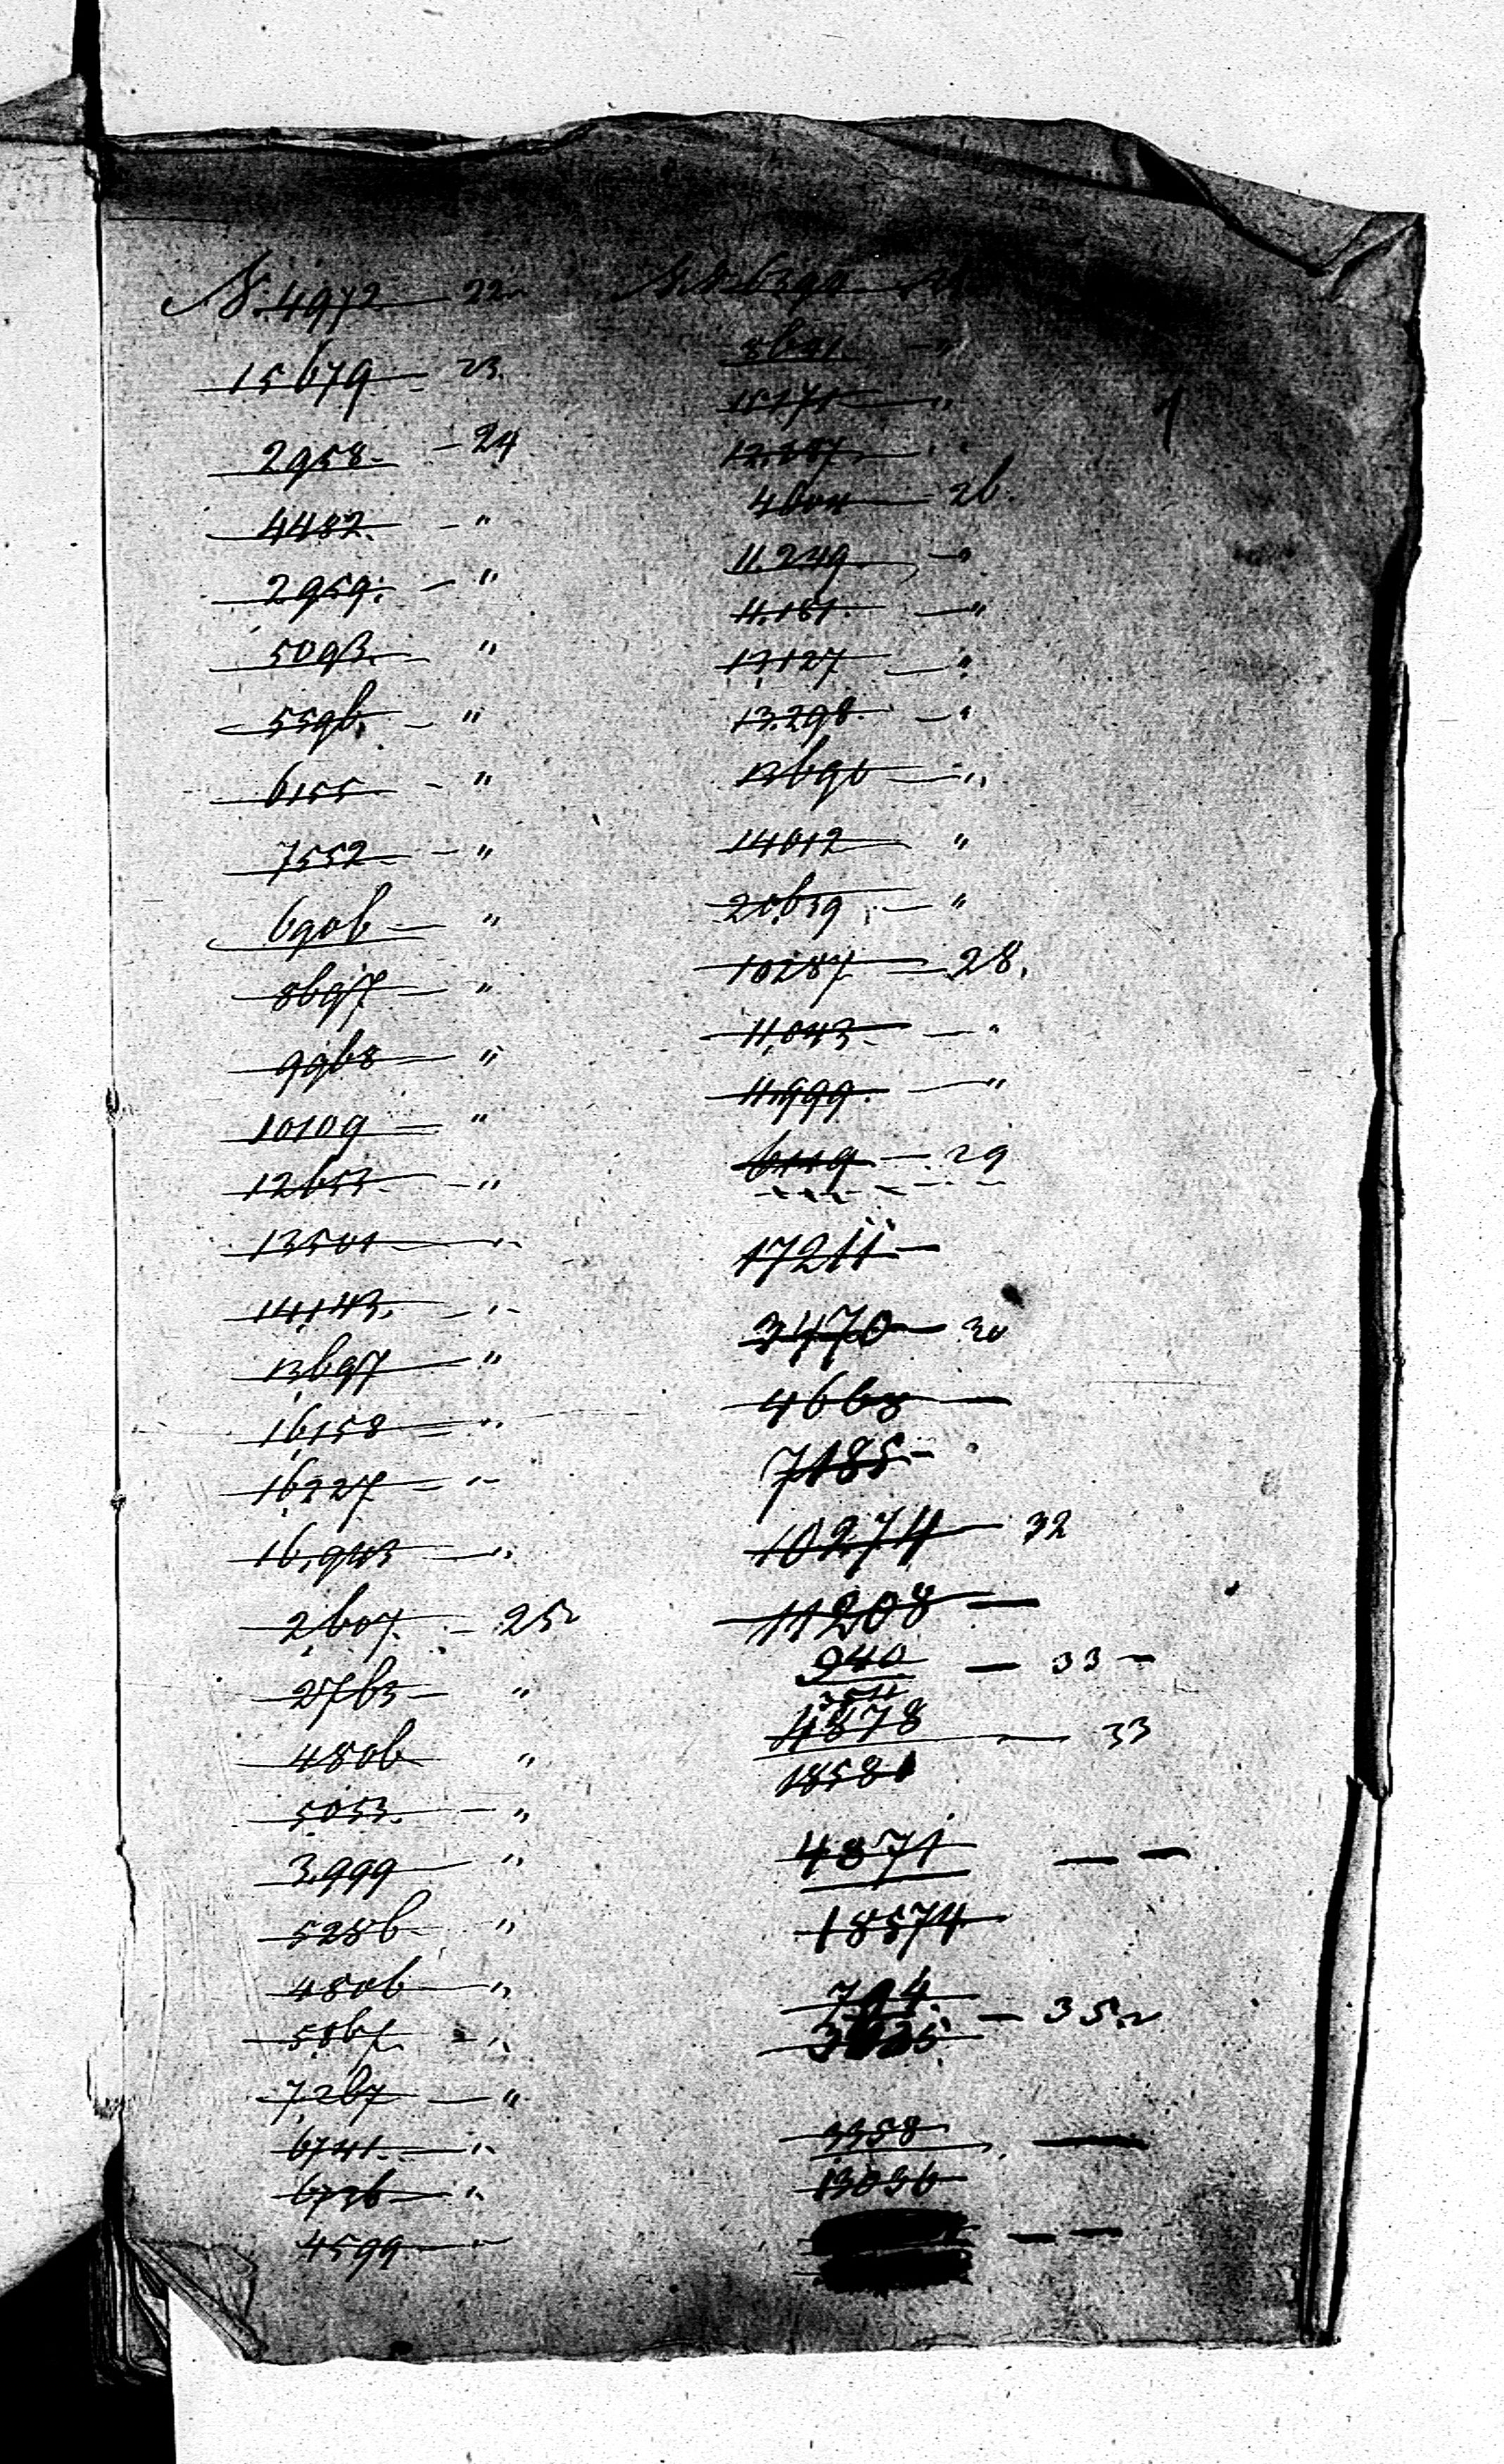 N. 4972 — 22
15679 — 23.
2958. — 24
4482. — "
2959. — "
5093. — "
5596. — "
6155 — "
7552 — "
6906 — "
8697 — "
9968 — "
10109 — "
12653 — "
13501 — "
14,143. — "
13,697 — "
16,158 — "
16,227 — "
16,943 — "
2,607. — 25
2763 — "
4806 "
5053. — "
3,999 — "
5286 "
4806 — "
5,067. "
7,267 — "
6741 — "
6736 — "
4599 — "
N. 6390
8691 — "
15171 — "
12,887. — "
4604 — 26.
11.249. — "
11.181. — "
13,127 — "
13.298. — "
13696 — "
14012 — "
20,659 — "
10287 — 28.
11,043. — "
11,999. — "
6119 — 29
17211 —
3470 — 30
4668 —
7185 —
10274 — 32
11208 —
940 — 33 —
4878 — 33
18581
4871 — —
18574
794 — 35
3358 —
13036
— —